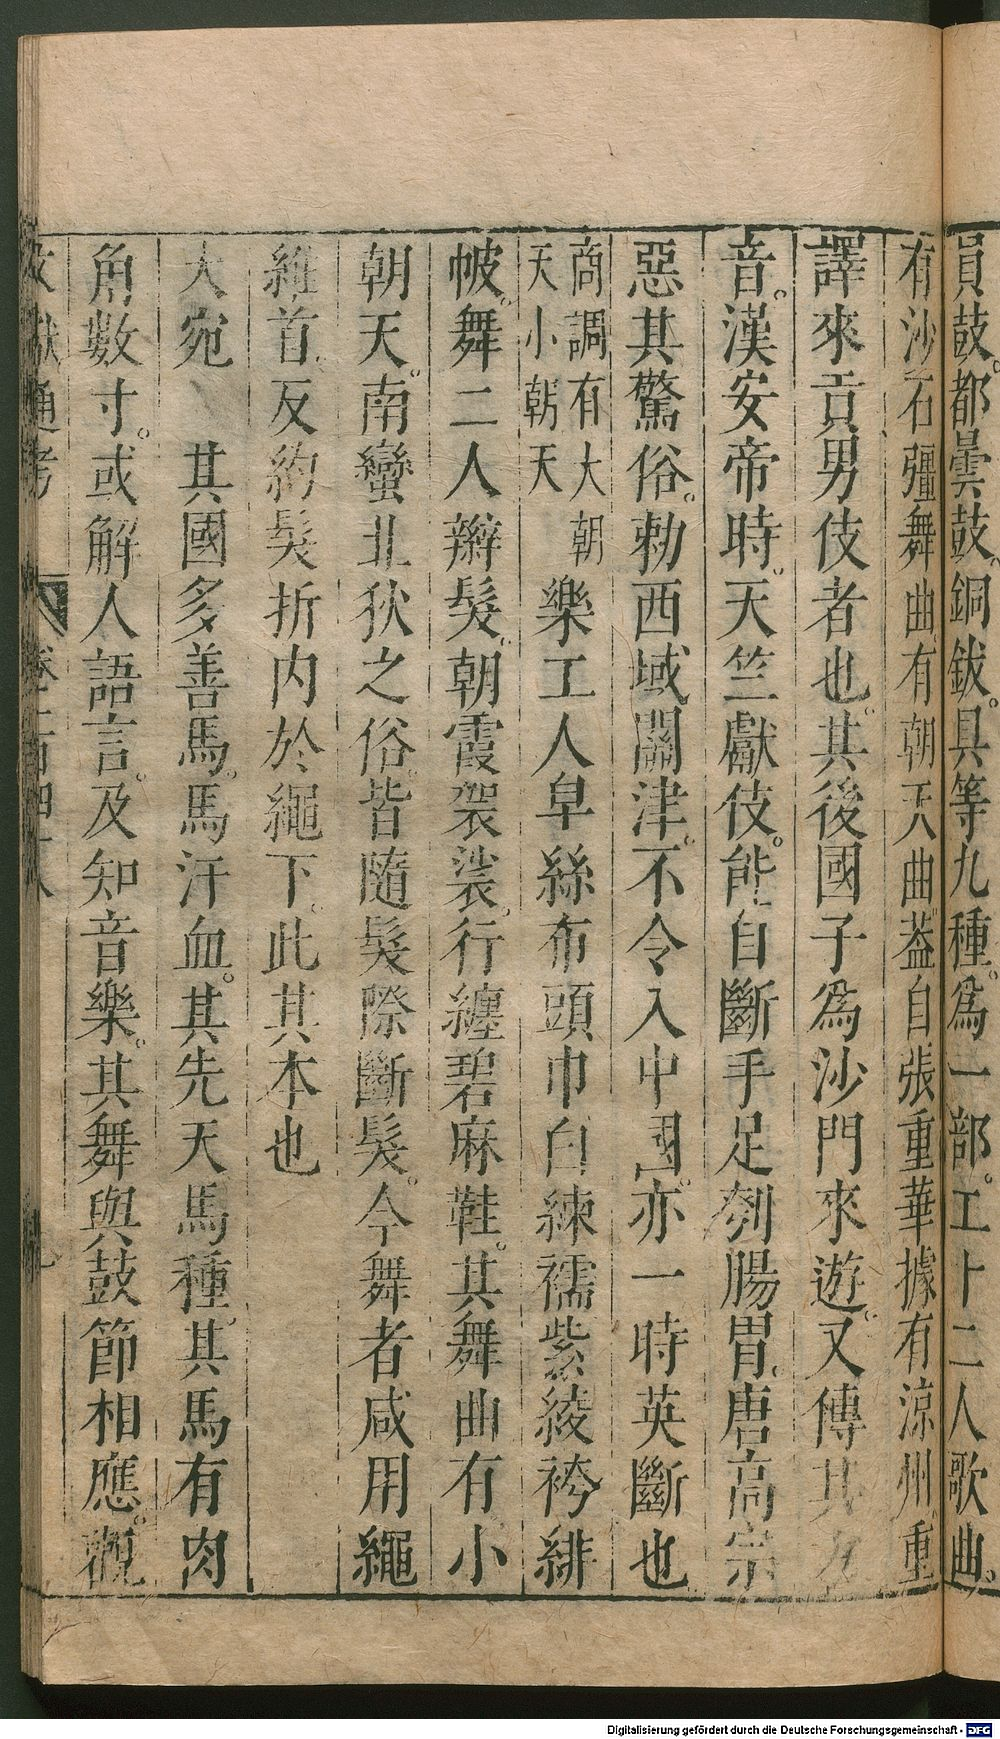 員鼓。都曇鼓。銅鈸。具等九種。爲一部。工十二人歌曲。
有沙石彊舞曲有朝天曲葢自張重華據有涼州。重
譯來貢男伎者也。其後國子爲沙門來遊。又傳其方
音。漢安帝時。天竺獻伎。能自斷手足刳腸胃。唐高宗
惡其驚俗。勅西域關津。不令入中國。亦一時英斷也
商調有大朝
天小朝天
樂工人皁絲布頭巾白練襦紫綾袴緋
帔。舞二人辮髮。朝霞袈裟。行纏碧麻鞋。其舞曲有小
朝天。南蠻北狄之俗。皆隨髮際斷髮。今舞者咸用繩
維首。反約髮折内於繩下。此其本也
大宛 其國多善馬。馬汗血。其先天馬種。其馬有肉
角數寸。或解人語言。及知音樂。其舞與鼓節相應。觀
文獻通考 卷一百四十八 九
Digitalisierung gefördert durch die Deutsche Forschungsgemeinschaft - DFG